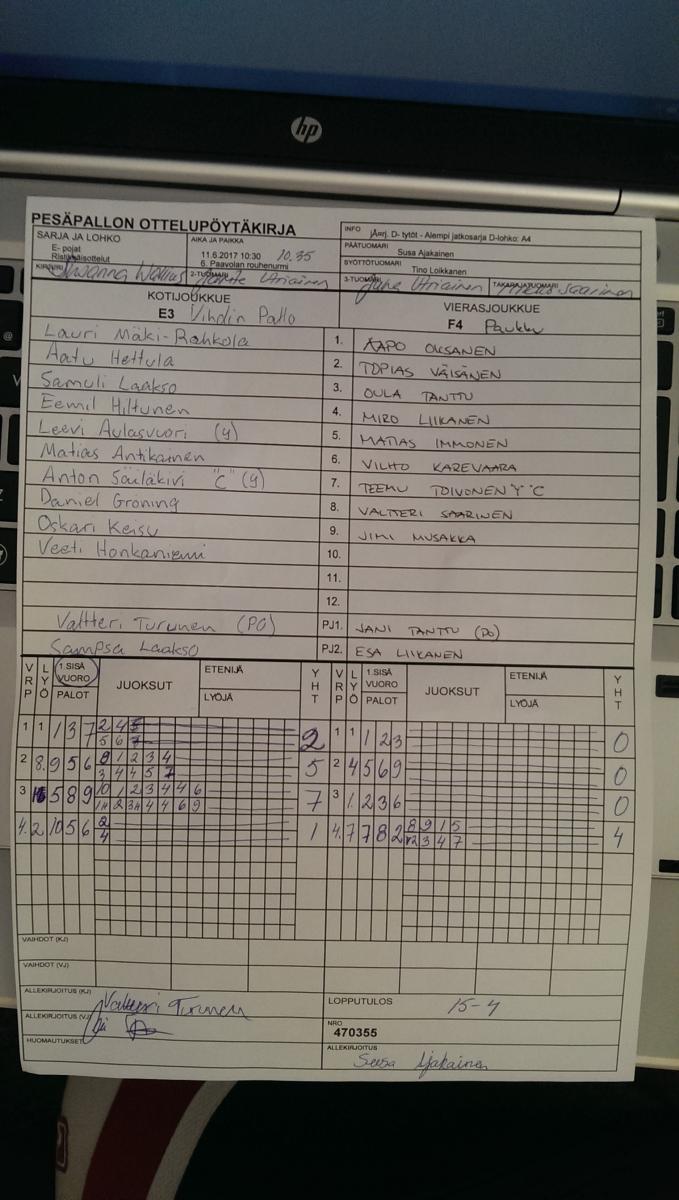 hp
PESÄPALLON OTTELUPÖYTÄKIRJA
SARJA JA LOHKO
E- pojat
Ristikkäisottelut
AIKA JA PAIKKA
11.6.2017 10:30 10.35
6. Paavolan rouhenurmi
INFO
D- tytöt - Alempi jatkosarja D-lohko: A4
PÄÄTUOMARI
Susa Ajakainen
SYÖTTÖTUOMARI
Tino Loikkanen
KIRJURI
2-TUOMARI
3-TUOMARI
TAKARAJATUOMARI
KOTIJOUKKUE
E3 Vihdin Pallo
VIERASJOUKKUE
F4 Paukku
Lauri Mäki-Rahkola 1. AAPO OKSANEN
Aatu Hettula 2. TOPIAS VÄISÄNEN
Samuli Laakso 3. OULA TANTTU
Eemil Hiltunen 4. MIRO LIIKANEN
Leevi Aulasvuori (y) 5. MATIAS IMMONEN
Matias Antikainen 6. VILHO KAREVAARA
Anton Säiläkivi "C" (y) 7. TEEMU TOIVONEN Y "C
Daniel Gröning 8. VALTTERI SAARINEN
Oskari Keisu 9. JIMI MUSAKKA
Veeti Honkaniemi 10.
11.
12.
Valtteri Turunen (PO) PJ1. JANI TANTTU (PO)
Sampsa Laakso PJ2. ESA LIIKANEN
VRP LYÖ 1.SISÄ VUORO PALOT JUOKSUT ETENIJÄ LYÖJÄ YHT VRP LYÖ 1.SISÄ VUORO PALOT JUOKSUT ETENIJÄ LYÖJÄ YHT
1 1 1 3 7 2 4 5 2 1 1 1 2 3 0
5 6 7
2 8. 9 5 6 1 2 3 4 5 2 4 5 6 9 0
3 4 4 5 7
3 5 8 9 10 1 2 3 4 4 6 7 3 1. 2 3 6 0
4. 2 10 5 6 2 1 4. 7 7 8 2 8 9 1 5 4
4 2 3 4 7
VAIHDOT (KJ)
VAIHDOT (VJ)
ALLEKIRJOITUS (KJ) Valtteri Turunen
LOPPUTULOS 15-4
ALLEKIRJOITUS (VJ)
NRO
470355
HUOMAUTUKSET
ALLEKIRJOITUS
Susa Ajakainen